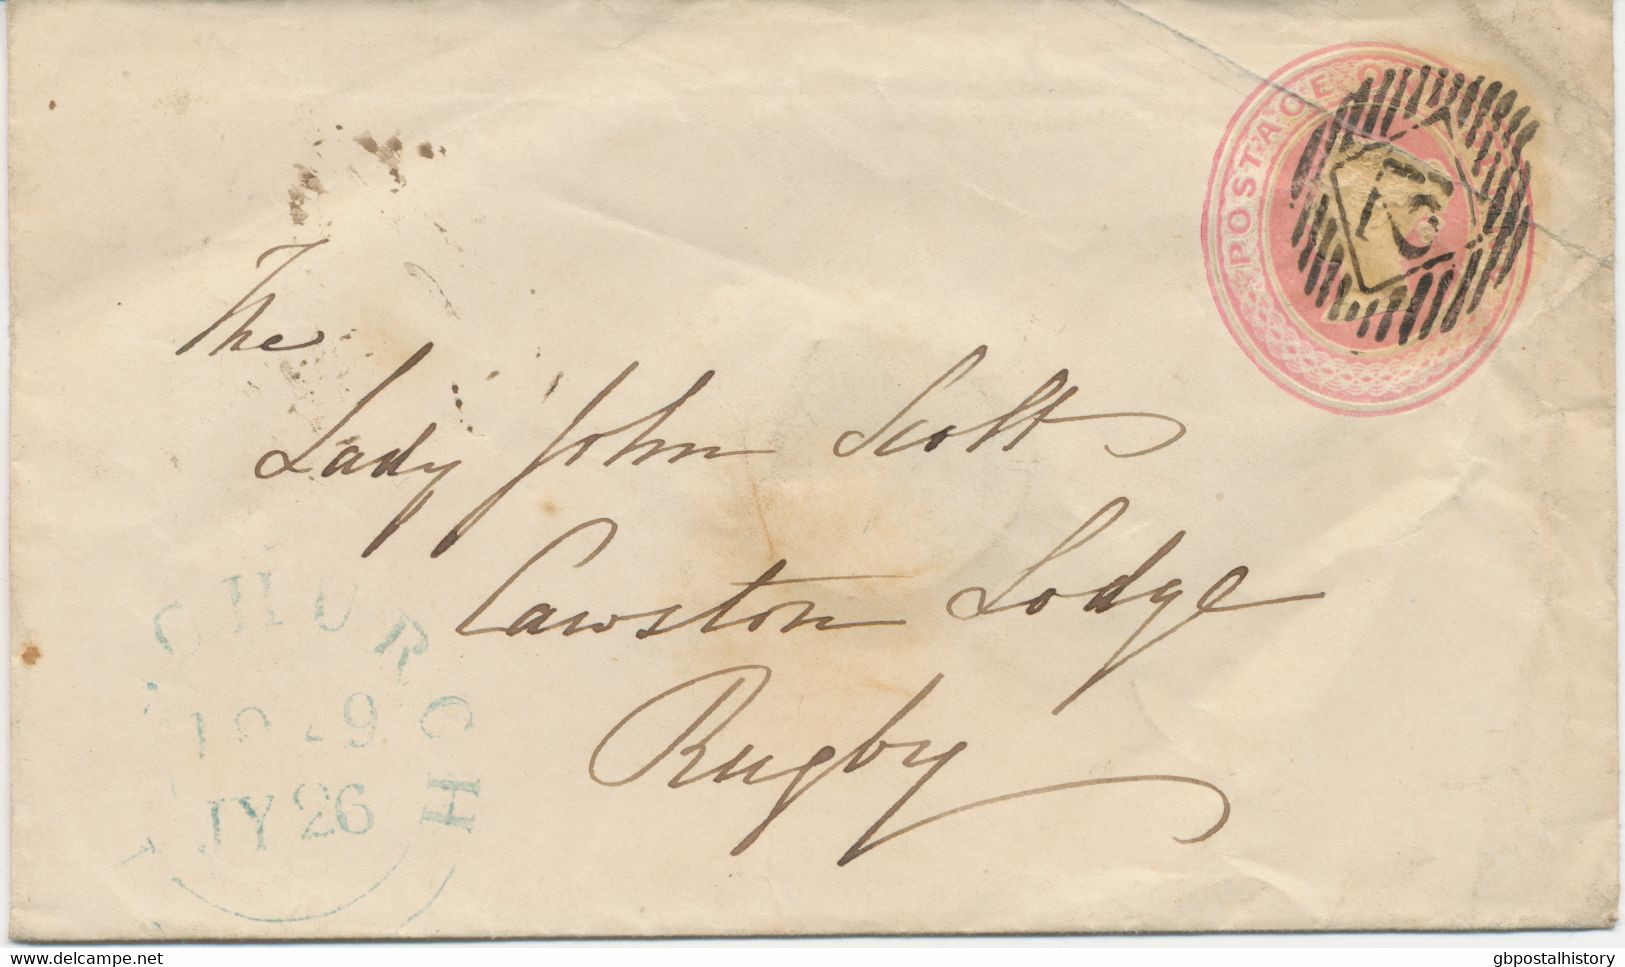 POSTAGE ON
The
Lady John Scott
Cawston Lodge
Rugby
CHURCH
JY 26
www.delcampe.net
gbpostalhistory